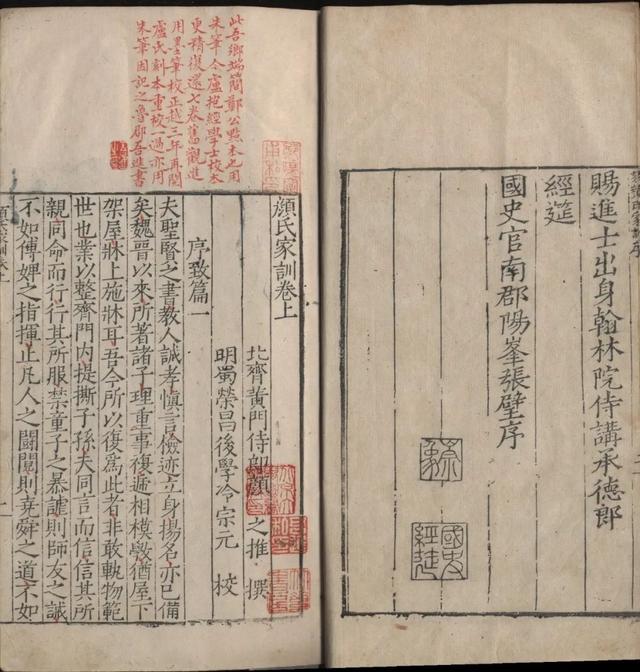 賜進士出身翰林院侍講承德郎
經筵
國史官南郡陽峯張璧序
國史
經筵
此吾鄉端簡鄭公點本也用
朱筆今盧抱經學士校本
更精復還七卷舊觀進
用墨筆校正越三年再閱
盧氏刻本重校一過亦用
朱筆因記之魯郡吾進書
顏氏家訓卷上
北齊黃門侍郎顏之推撰
明蜀榮昌後學冷宗元校
序致篇一
夫聖賢之書教人誠孝慎言儉迹立身揚名亦已備
矣魏晉以來所著諸子理重事復遞相模斆猶屋下
架屋牀上施牀耳吾今所以復為此者非敢軌物範
世也業以整齊門內提撕子孫夫同言而信信其所
親同命而行行其所服禁童子之暴謔則師友之誡
不如傅婢之指揮止凡人之鬪鬩則堯舜之道不如